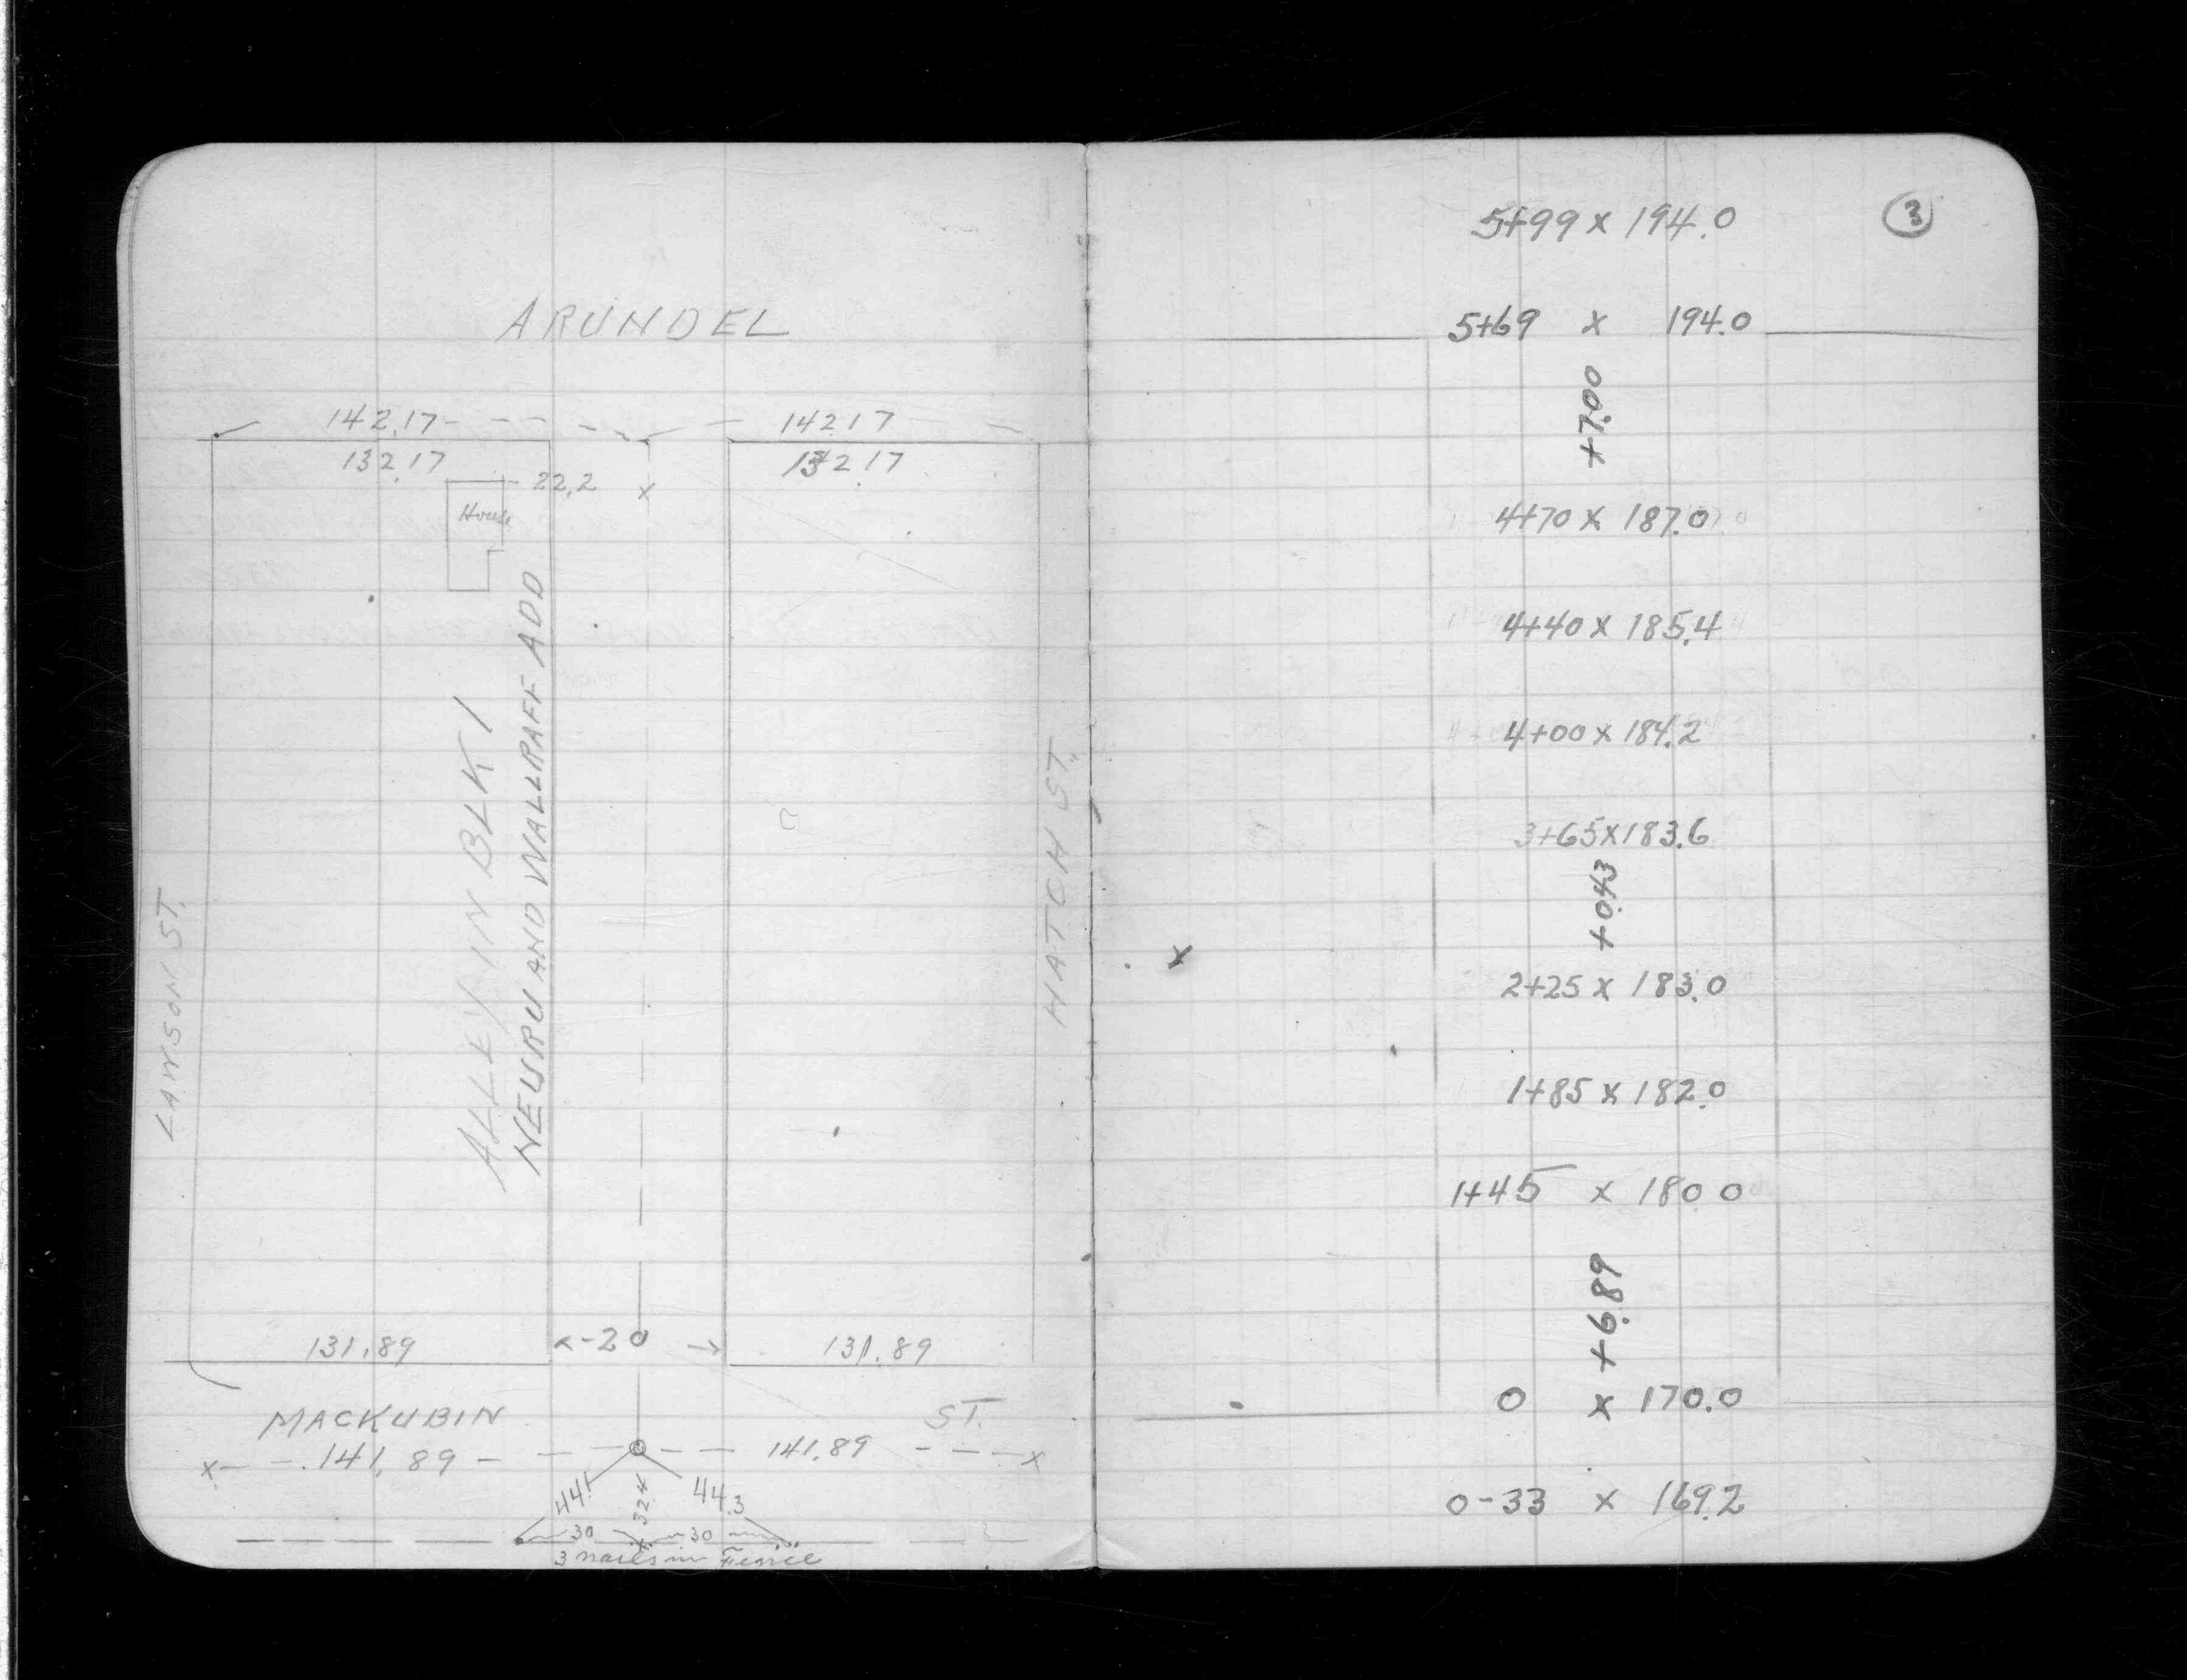 ARUNDEL
142.17 142 17
132.17 132.17
22.2
House
ALLEY IN BLK 1
NEUSRU AND WALLRAFF ADD
LAWSON ST.
HATCH ST.
131.89 <-20 -> 131.89
MACKUBIN ST.
x- - .141.89 - 141.89 - - - x
44.1 324 44.3
30 30
3 nails in Fence
3
5+99 x 194.0
5+69 x 194.0
+7.00
4+70 x 187.0
4+40 x 185.4
4+00 x 184.2
3+65 x 183.6
+0.43
2+25 x 183.0
1+85 x 182.0
1+45 x 180 0
+6.89
0 x 170.0
0-33 x 169.2